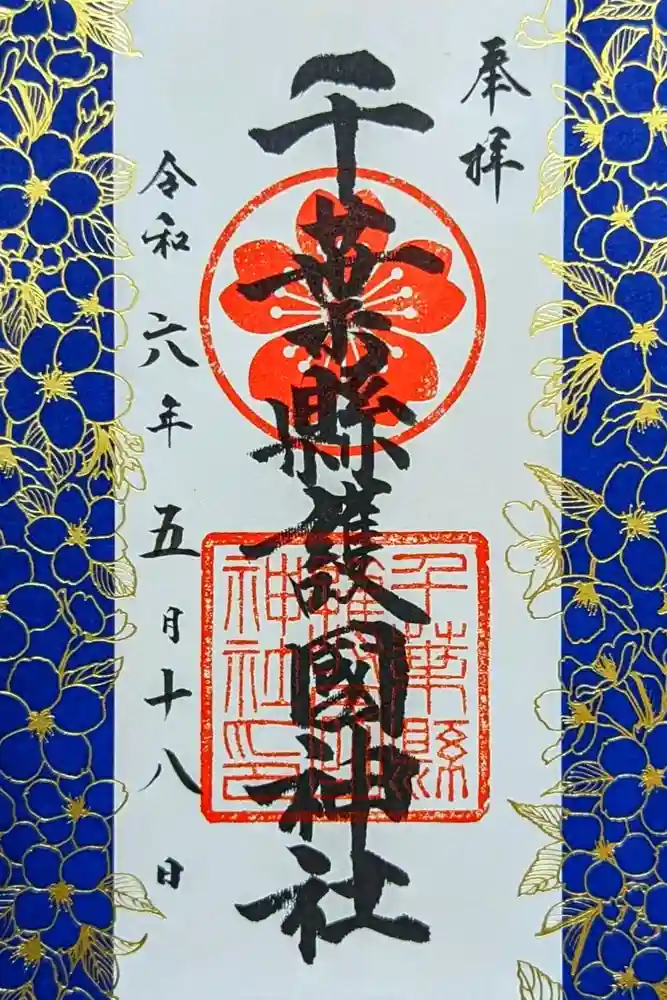 奉拝
千葉縣護國神社
千葉縣
護國神
社印
令和六年五月十八日